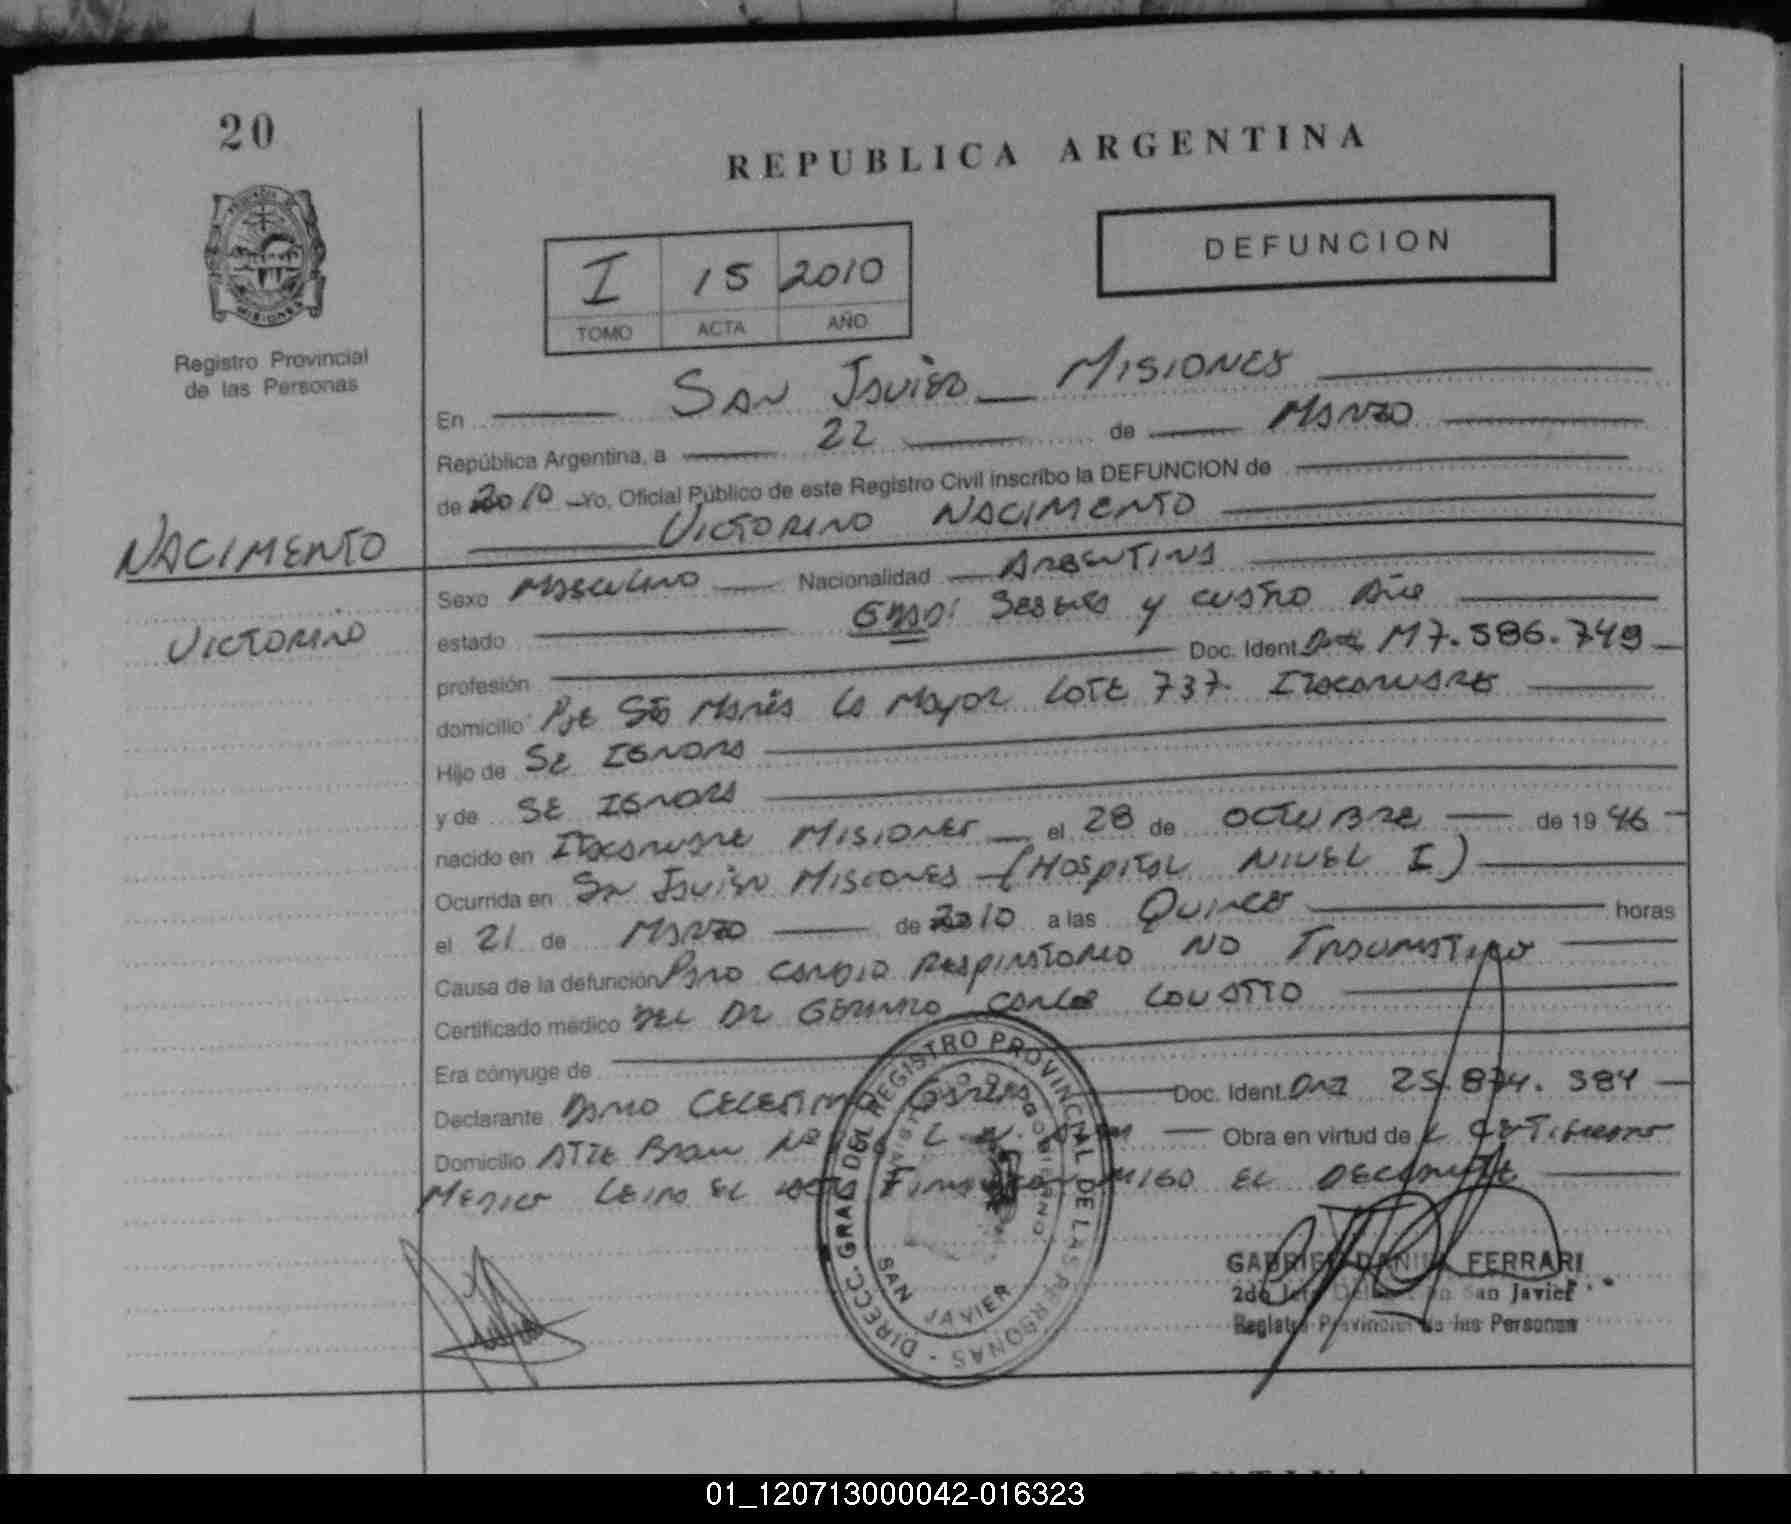 20
REPUBLICA ARGENTINA
DEFUNCION
I 15 2010
TOMO ACTA AÑO
Registro Provincial
de las Personas
En San Javier Misiones
República Argentina, a 22 de Marzo
de 2010 Yo, Oficial Público de este Registro Civil inscribo la DEFUNCION de
Victorino Nacimento
NACIMENTO
VICTORINO
Sexo Masculino Nacionalidad Argentina
estado Edad: Sesenta y cuatro Año
profesión Doc. Ident. M7.586.749
domicilio Pje Sta María La Mayor Lote 737 Itacaruare
Hijo de Se Ignora
y de Se Ignora
nacido en Itacaruare Misiones el 28 de Octubre de 1946
Ocurrida en San Javier Misiones (Hospital Nivel I)
el 21 de Marzo de 2010 a las Quince horas
Causa de la defunción Paro Cardio Respiratorio No Traumatico
Certificado médico del Dr Gerardo Carlos
Era cónyuge de
Declarante Celestino Doc. Ident. DNI 25.874.384
Domicilio Alte Brown Nº Obra en virtud de Certificado
Medico Leido el Firma conmigo el Declarante
DIRECC. GRAL. DEL REGISTRO PROVINCIAL DE LAS PERSONAS
SAN JAVIER
GABRIEL DANIEL FERRARI
2do San Javier
Registro Provincial de las Personas
01_120713000042-016323